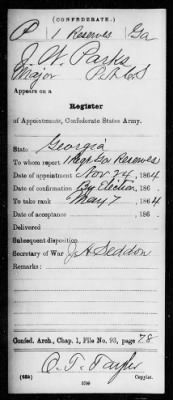 (CONFEDERATE.)
P 1 Reserves Ga
J. W. Parks
Major
Appears on a
Register
of Appointments, Confederate States Army.
State Georgia
To whom report 1 Regt Ga Reserves
Date of appointment Nov 24, 1864
Date of confirmation By Election, 186
To take rank May 7, 1864
Date of acceptance , 186
Delivered
Subsequent disposition
Secretary of War J. A. Seddon
Remarks:
Confed. Arch., Chap. 1, File No. 93, page 78
(635) Copyist.